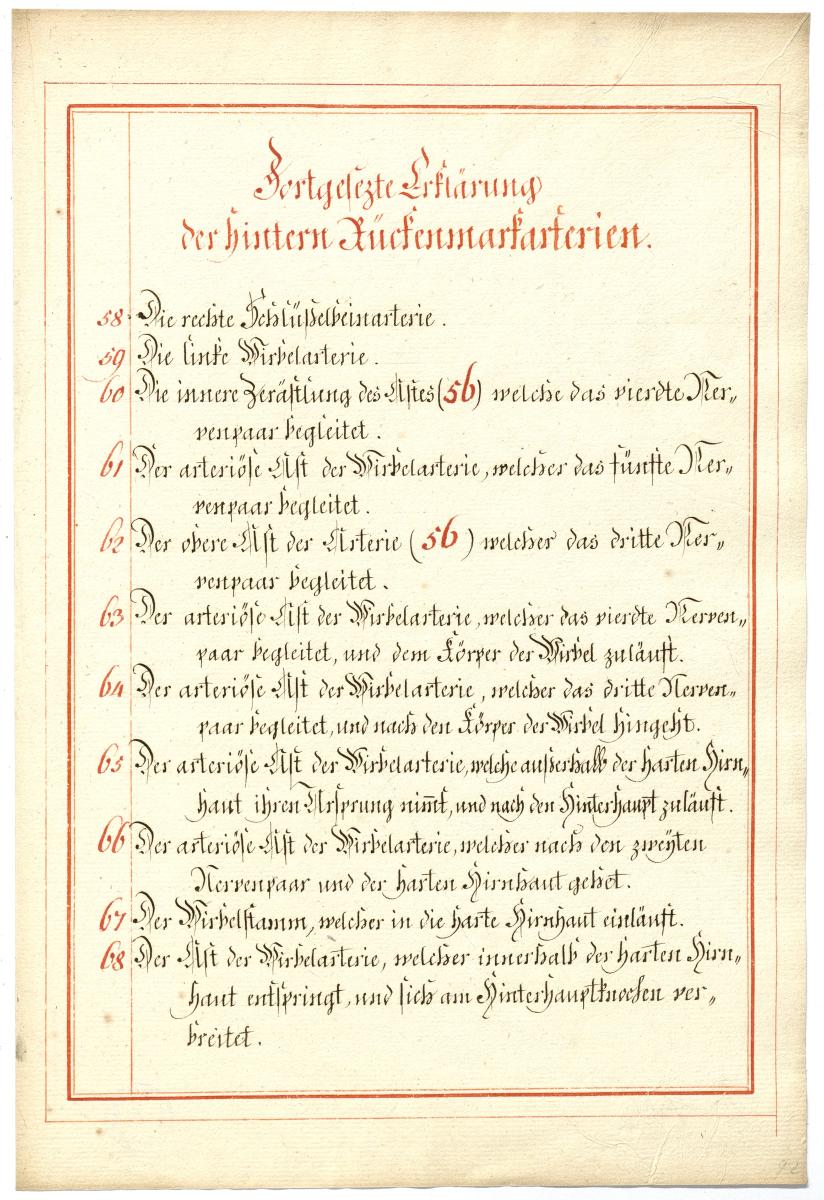 Fortgesezte Erklärung
der hintern Rückenmarkarterien.
58 Die rechte Schlüßelbeinarterie.
59 Die linke Wirbelarterie.
60 Die innere Zerästlung des Astes (56) welche das vierdte Ner„
venpaar begleitet.
61 Der arteriöse Ast der Wirbelarterie, welcher das fünfte Ner„
venpaar begleitet.
62 Der obere Ast der Arterie (56) welcher das dritte Ner„
venpaar begleitet.
63 Der arteriöse Ast der Wirbelarterie, welcher das vierdte Nerven„
paar begleitet, und dem Körper der Wirbel zuläuft.
64 Der arteriöse Ast der Wirbelarterie, welcher das dritte Nerven„
paar begleitet, und nach den Körper der Wirbel hingeht.
65 Der arteriöse Ast der Wirbelarterie, welche außerhalb der harten Hirn„
haut ihren Ursprung nim̄t, und nach den Hinterhaupt zuläuft.
66 Der arteriöse Ast der Wirbelarterie, welcher nach den zweÿten
Nervenpaar und der harten Hirnhaut gehet.
67 Der Wirbelstamm, welcher in die harte Hirnhaut einläuft.
68 Der Ast der Wirbelarterie, welcher innerhalb der harten Hirn„
haut entspringt, und sich am Hinterhauptknochen ver„
breitet.
92